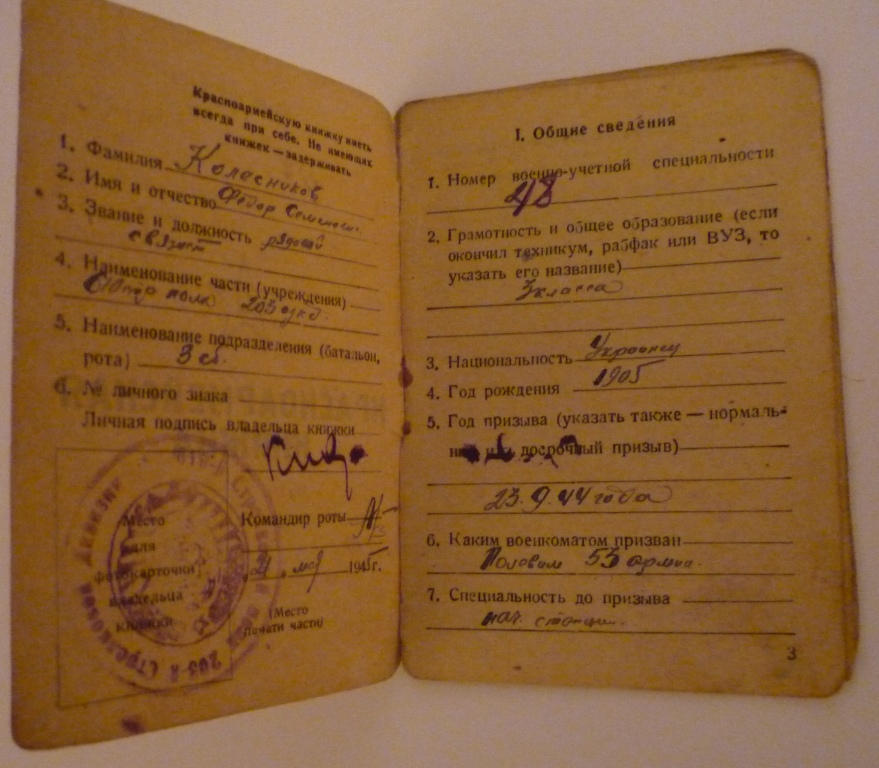 Красноармейскую книжку иметь
всегда при себе. Не имеющих
книжек — задерживать
1. Фамилия Колесников
2. Имя и отчество Федор Семенович
3. Звание и должность рядовой
связист
4. Наименование части (учреждения)
полк 203
5. Наименование подразделения (батальон,
рота) 3 сб.
6. № личного знака
Личная подпись владельца книжки
Место
для
фотокарточки
владельца
книжки
Командир роты
мая 1945г.
(Место
печати части)
I. Общие сведения
1. Номер военно-учетной специальности
48
2. Грамотность и общее образование (если
окончил техникум, рабфак или ВУЗ, то
указать его название)
3 класса
3. Национальность Украинец
4. Год рождения 1905
5. Год призыва (указать также — нормаль-
ный или досрочный призыв)
23.9.44 года
6. Каким военкоматом призван
Полевым 53 армии.
7. Специальность до призыва
нач. станции.
3